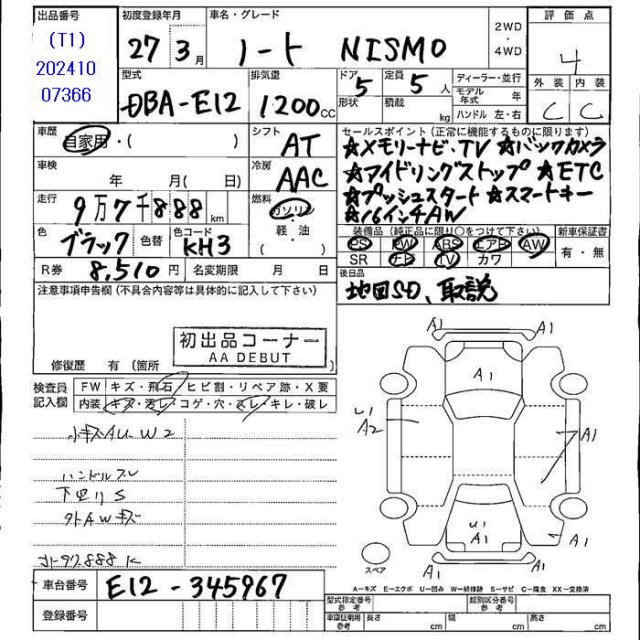 出品番号
(T1)
202410
07366
初度登録年月
27年3月
車名・グレード
ノート NISMO
2WD
・
4WD
評価点
4
外装 内装
C C
型式
DBA-E12
排気量
1200cc
ドア 5
形状
定員 5人
積載 kg
ディーラー・並行
モデル年式 年
ハンドル 左・右
車歴
自家用・( )
シフト
AT
車検
年 月(日)
冷房
AAC
走行
9万7千888km
燃料
ガソリン
軽・油
( )
色
ブラック
色替
色コード
KH3
R券 8,510円
名変期限 月 日
セールスポイント(正常に機能するものに限ります)
☆メモリーナビ・TV ☆バックカメラ
☆アイドリングストップ ☆ETC
☆プッシュスタート ☆スマートキー
☆16インチAW
装備品(純正品に限り○をつけて下さい)
新車保証書
PS PW ABS エアB AW
有・無
SR ナビ TV カワ
後日品
地図SD、取説
注意事項申告欄(不具合内容等は具体的に記入して下さい)
初出品コーナー
AA DEBUT
修復歴 有(箇所 )
検査員
記入欄
FW キズ・飛石・ヒビ割・リペア跡・X要
内装 キズ・汚レ・コゲ・穴・スレ・キレ・破レ
小キズAU-W2
ハンドルスレ
下廻りS
外AWキズ
車台番号 E12-345967
登録番号
A1
A1
A1
U1
A2
A1
U1
A1
A1
A1
スペア
A-キズ E-エクボ U-凹み W-補修跡 S-サビ C-腐食 XX-交換済
型式指定番号 参考
類別区分番号 参考
車庫証明用 参考
長さ cm
幅 cm
高さ cm